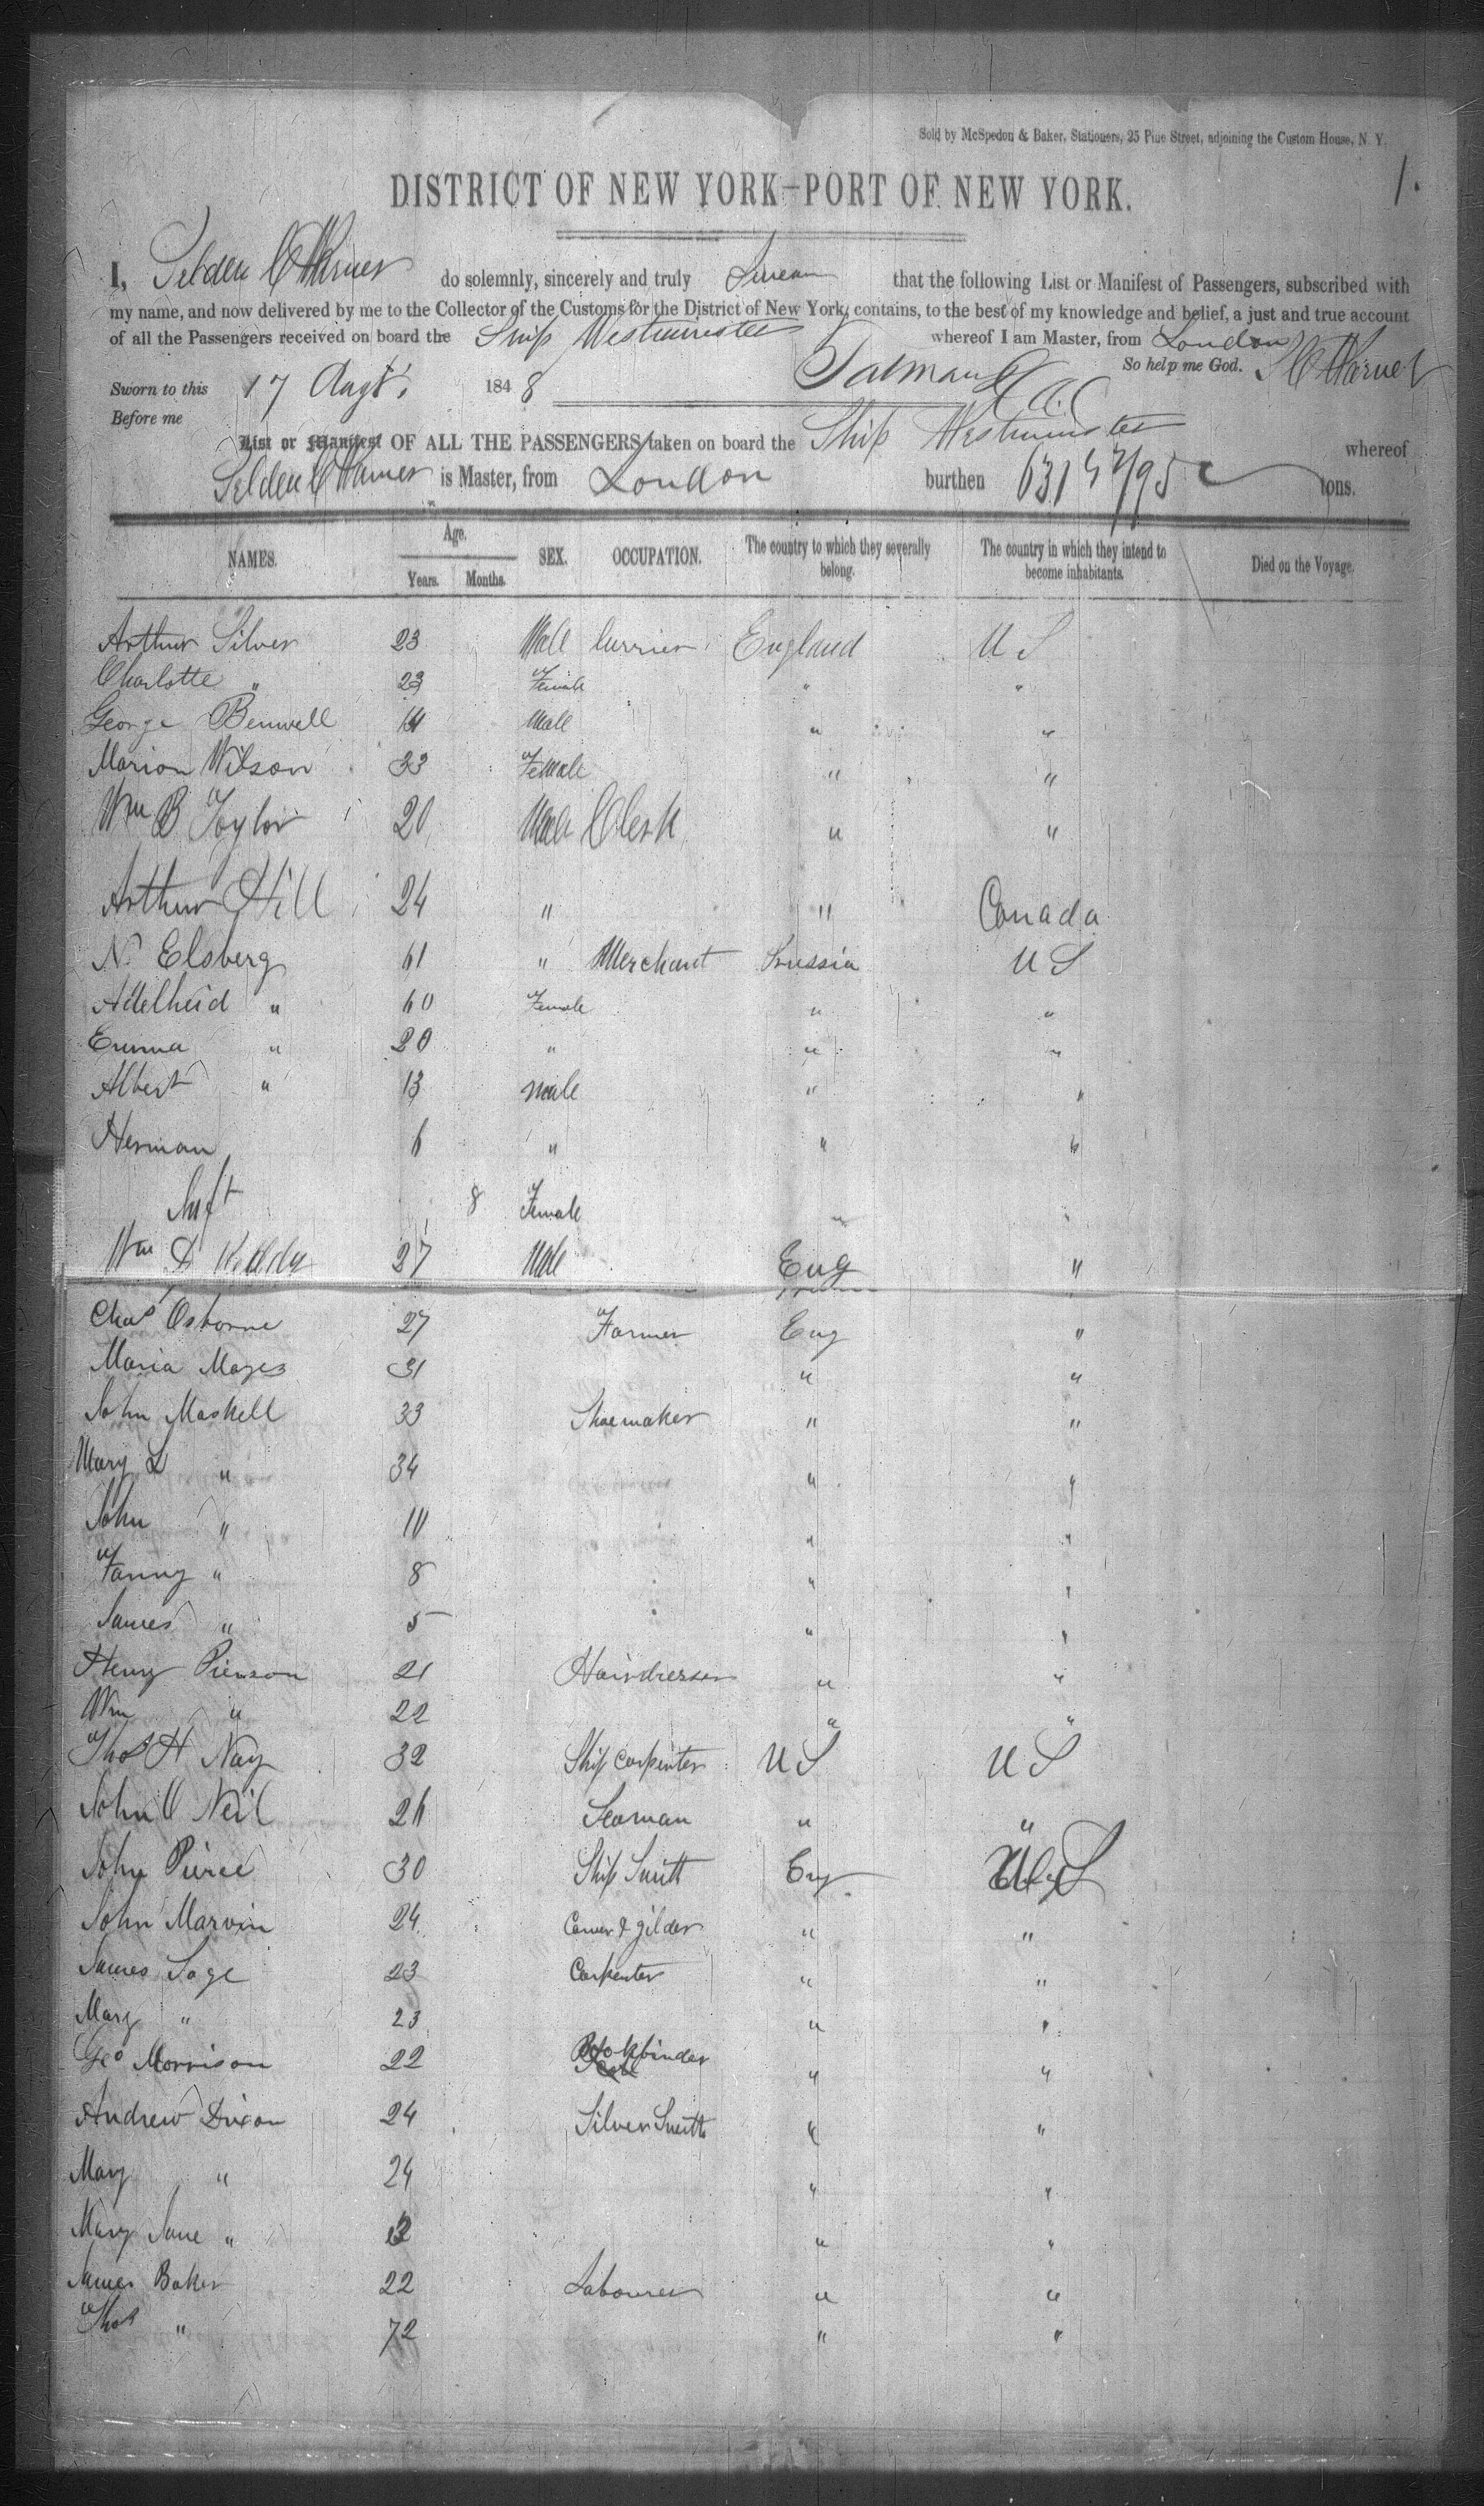 Sold by McSpedon & Baker, Stationers, 25 Pine Street, adjoining the Custom House, N. Y.
1.
DISTRICT OF NEW YORK–PORT OF NEW YORK.
I, Selden C Warner do solemnly, sincerely and truly Swear that the following List or Manifest of Passengers, subscribed with
my name, and now delivered by me to the Collector of the Customs for the District of New York, contains, to the best of my knowledge and belief, a just and true account
of all the Passengers received on board the Ship Westminster whereof I am Master, from London
So help me God. S C Warner
Sworn to this 17 Augt. 1848
Before me
List or Manifest OF ALL THE PASSENGERS taken on board the Ship Westminster whereof
Selden C Warner is Master, from London burthen 631 /95 tons.
NAMES. Age. Years. Months. SEX. OCCUPATION. The country to which they severally belong. The country in which they intend to become inhabitants. Died on the Voyage.
Arthur Silver 23 Male Currier England U S
Charlotte " 23 Female " "
George Benwell 14 Male " "
Marion Wilson 33 Female " "
Wm B Taylor 20 Male Clerk " "
Arthur Hill 24 " " Canada
N. Elsberg 61 " Merchant Prussia U S
Adelheid " 60 Female " "
Emma " 20 " " "
Albert " 13 male " "
Herman 6 " " "
Inft 8 Female " "
Wm D 27 Male Eng "
Chas Osborne 27 Farmer Eng "
Maria Mayes 31 " "
John Maskell 33 Shoemaker " "
Mary L " 34 " "
John " 10 " "
Fanny " 8 " "
James " 5 " "
Henry Pierson 21 Hairdresser " "
Wm " 22 " "
Thos H Nay 32 Ship Carpenter U S U S
John O Neil 26 Seaman " "
John Pierce 30 Ship Smith Eng U S
John Marvin 24 Carver & gilder " "
James Sage 23 Carpenter " "
Mary " 23 " "
Geo Morrison 22 Bookbinder " "
Andrew Dixon 24 Silver Smith " "
Mary " 24 " "
Mary Jane " " "
James Baker 22 Labourer " "
Thos " 72 " "